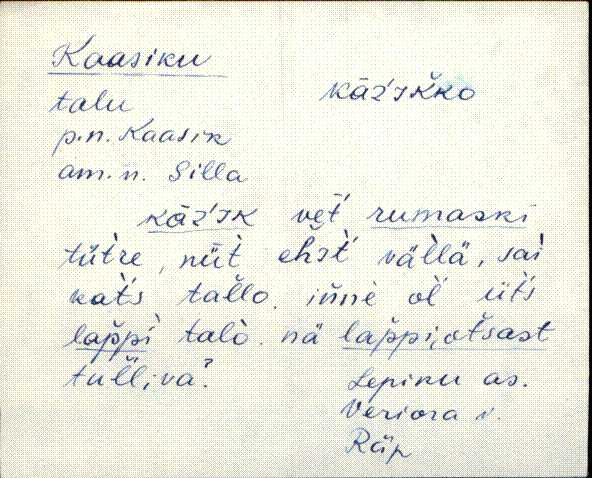 Kaasiku
kāź'ık̆ko
talu
p.n. Kaasik
am.n. Silla
kāź'ık vet̆' rumaski
tütre, nüt̀ ehıt̆' väl̀lä, saì
kat's tal̆lo. iñne ol̆ üt's
lap̆pì talò. nä lap̆pi, ot̆sast
tul̆liva?
Lepiku as.
Veriora v.
Räp